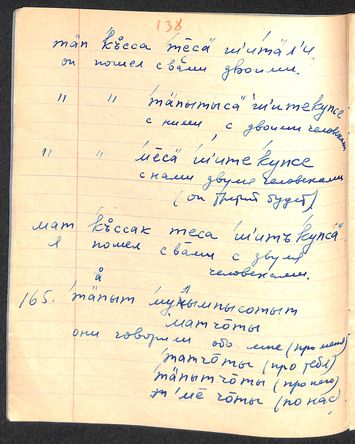 138
тӓп къ̊сса те̄сӓ ш'итӓл'и
он пошел с вами двоими.
" " тӓпытысӓ ш'ите ӄупсе
с ними, с двоими человеками
" " ме̄сӓ ш'ите ӄупсе
с нами двумя человеками
(он третий будет)
мат къ̊ссак теса ш'итъ ӄупсӓ
я пошел с вами с двумя
человеками.
165. тӓпыт
матчо̄ты
они говорили обо мне (про меня)
татчо̄ты (про тебя)
тӓпытчо̄ты (про него)
ме̄ чо̄ты (по нас)